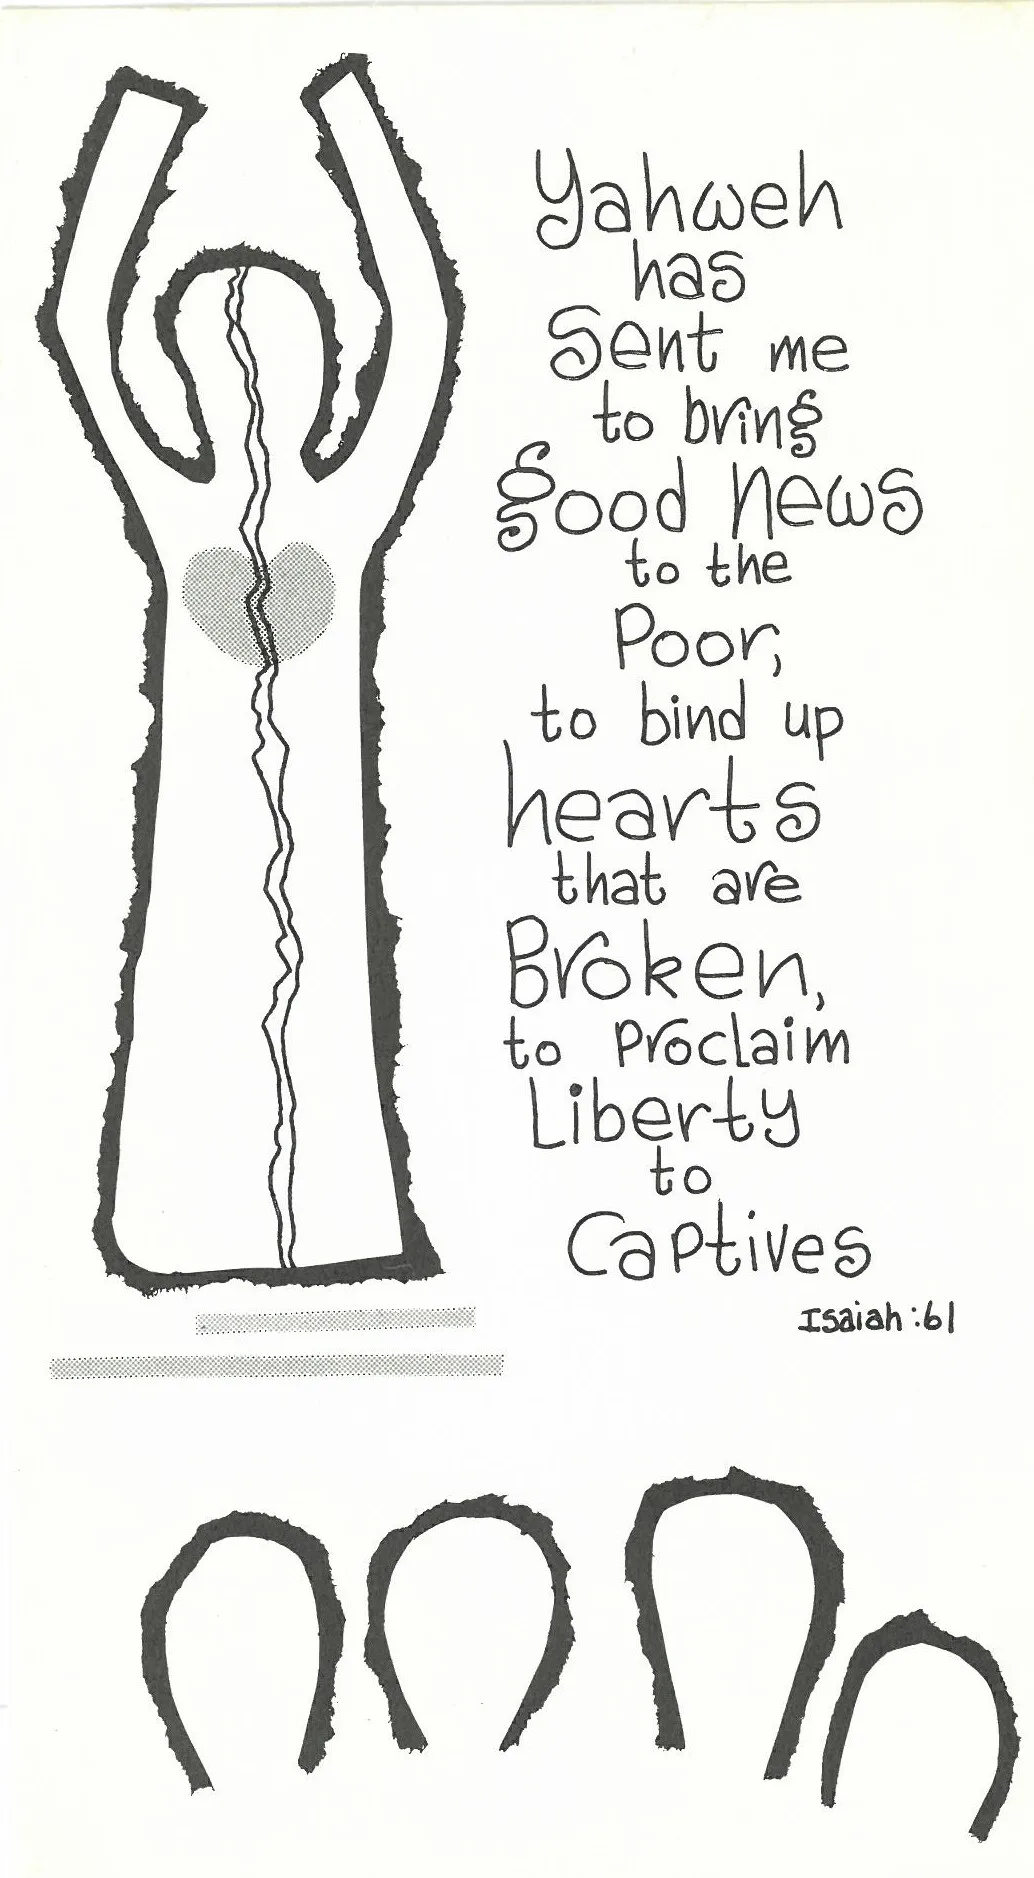 Yahweh
has
Sent me
to bring
good News
to the
Poor,
to bind up
hearts
that are
Broken,
to Proclaim
Liberty
to
Captives
Isaiah:61